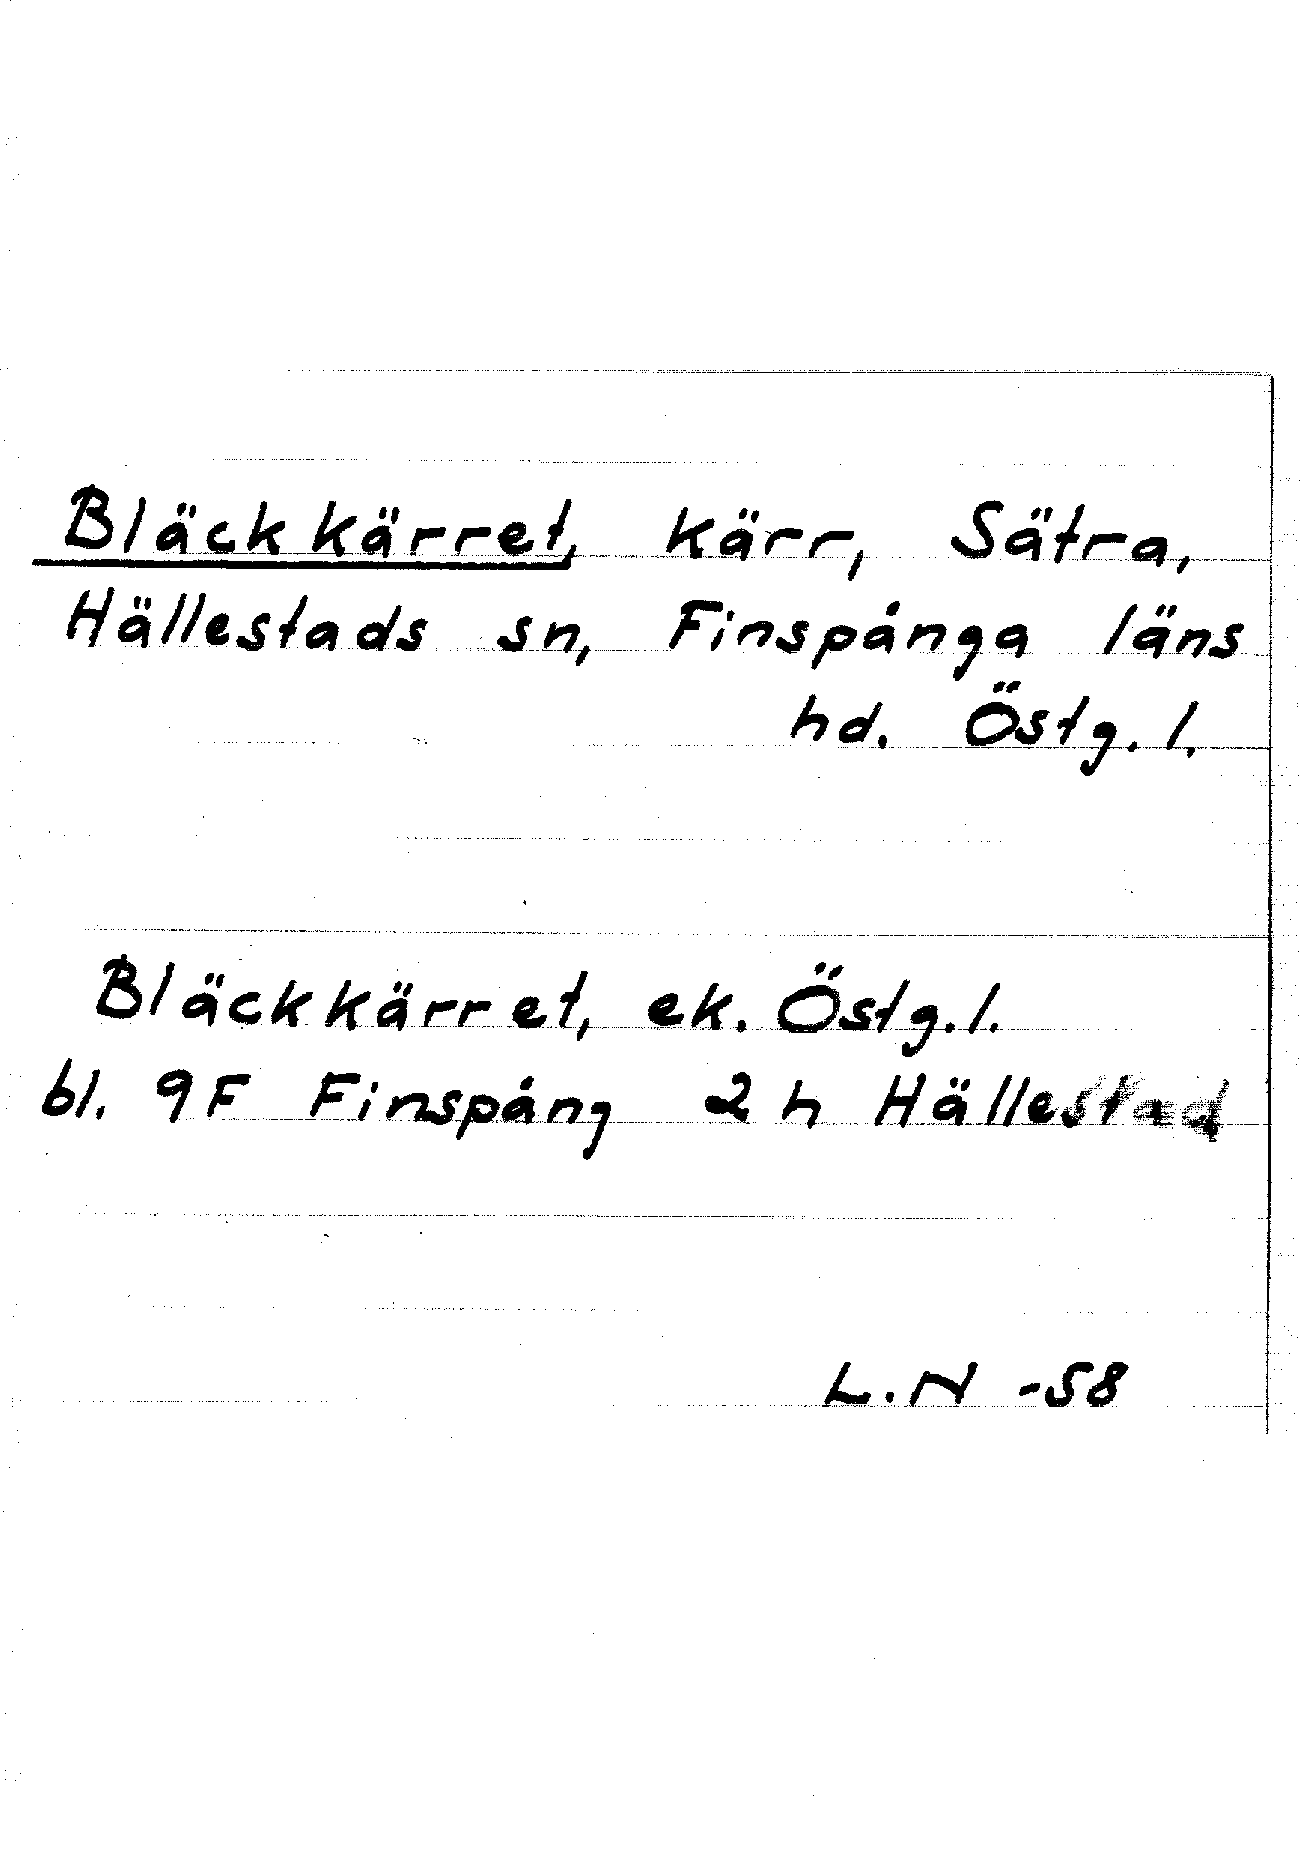 Bläckkärret, kärr, Sätra,
Hällestads sn, Finspånga läns
hd. Östg. l.
Bläckkärret, ek. Östg. l.
bl. 9F Finspång 2 h Hällestad
L. N -58